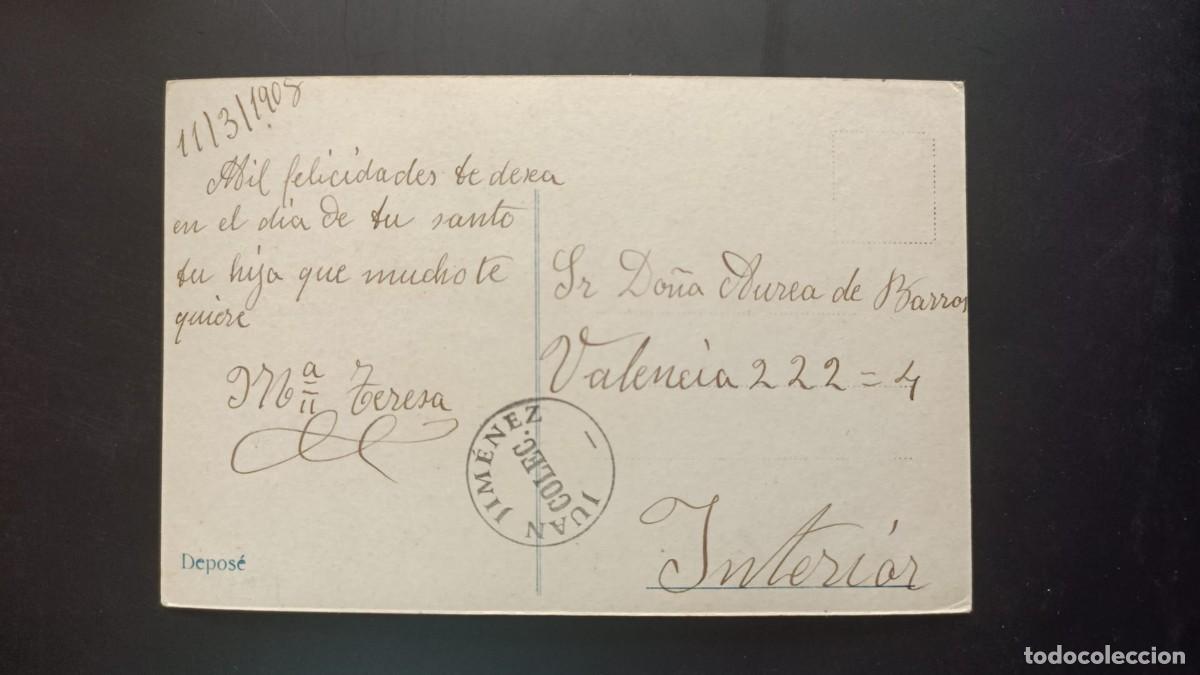 11/3/1908
Mil felicidades te desea
en el dia de tu santo
tu hija que mucho te
quiere
Mª Teresa
Deposé
Sr Doña Aurea de Barros
Valencia 222 = 4
Interior
JUAN JIMÉNEZ
COLEC.
todocoleccion